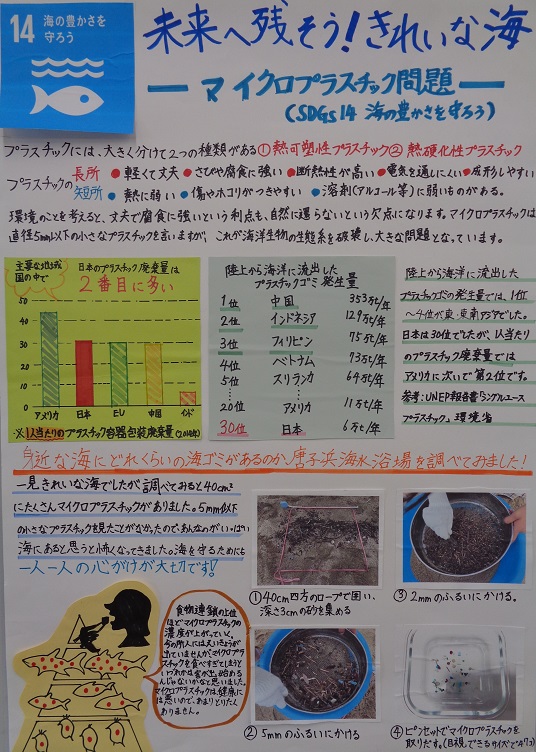 14 海の豊かさを
守ろう
未来へ残そう!きれいな海
ーマイクロプラスチック問題ー
(SDGs14 海の豊かさを守ろう)
プラスチックには、大きく分けて2つの種類がある①熱可塑性プラスチック②熱硬化性プラスチック
プラスチックの
長所 ●軽くて丈夫 ●さびや腐食に強い ●断熱性が高い ●電気を通しにくい ●成形しやすい
短所 ●熱に弱い ●傷やホコリがつきやすい ●溶剤(アルコール等)に弱いものがある。
環境のことを考えると、丈夫で腐食に強いという利点も、自然に還らないという欠点になります。マイクロプラスチックは
直径5mm以下の小さなプラスチックを言いますが、これが海洋生物の生態系を破壊し、大きな問題となっています。
主要な地域
国の中で
日本のプラスチック廃棄量は
2番目に多い
50
40
30
20
10
0
アメリカ 日本 EU 中国 インド
※1人当たりのプラスチック容器包装廃棄量(2014年)
陸上から海洋に流出した
プラスチックゴミ発生量
1位 中国 353万t/年
2位 インドネシア 129万t/年
3位 フィリピン 75万t/年
4位 ベトナム 73万t/年
5位 スリランカ 64万t/年
20位 アメリカ 11万t/年
30位 日本 6万t/年
陸上から海洋に流出した
プラスチックゴミの発生量では、1位
～4位が東・東南アジアでした。
日本は30位でしたが、1人当たり
のプラスチック廃棄量では
アメリカに次いで第2位です。
参考:UNEP報告書「シングルユース
プラスチック」環境省
身近な海にどれくらいの海ゴミがあるのか、唐子浜海水浴場を調べてみました!
一見きれいな海でしたが調べてみると40cm²
にたくさんマイクロプラスチックがありました。5mm以下
の小さなプラスチックを見たことがなかったので、あんなのがいっぱい
海にあると思うと怖くなってきました。海を守るためにも
一人一人の心がけが大切です!
①40cm四方のロープで囲い、
深さ3cmの砂を集める
③2mmのふるいにかける。
②5mmのふるいにかける
④ピンセットでマイクロプラスチックを
取りだす。(目視できるサイズで47コ)
食物連鎖の上位
ほどマイクロプラスチックの
濃度が上がっていく。
今の所人には大きいえいきょうが
出ていませんがマイクロプラ
スチックを食べすぎてしまうと
いつかは害が出始める
んじゃないかなと思いました。
マイクロプラスチックは、健康に
は悪いので、あまりとりたく
ありません。